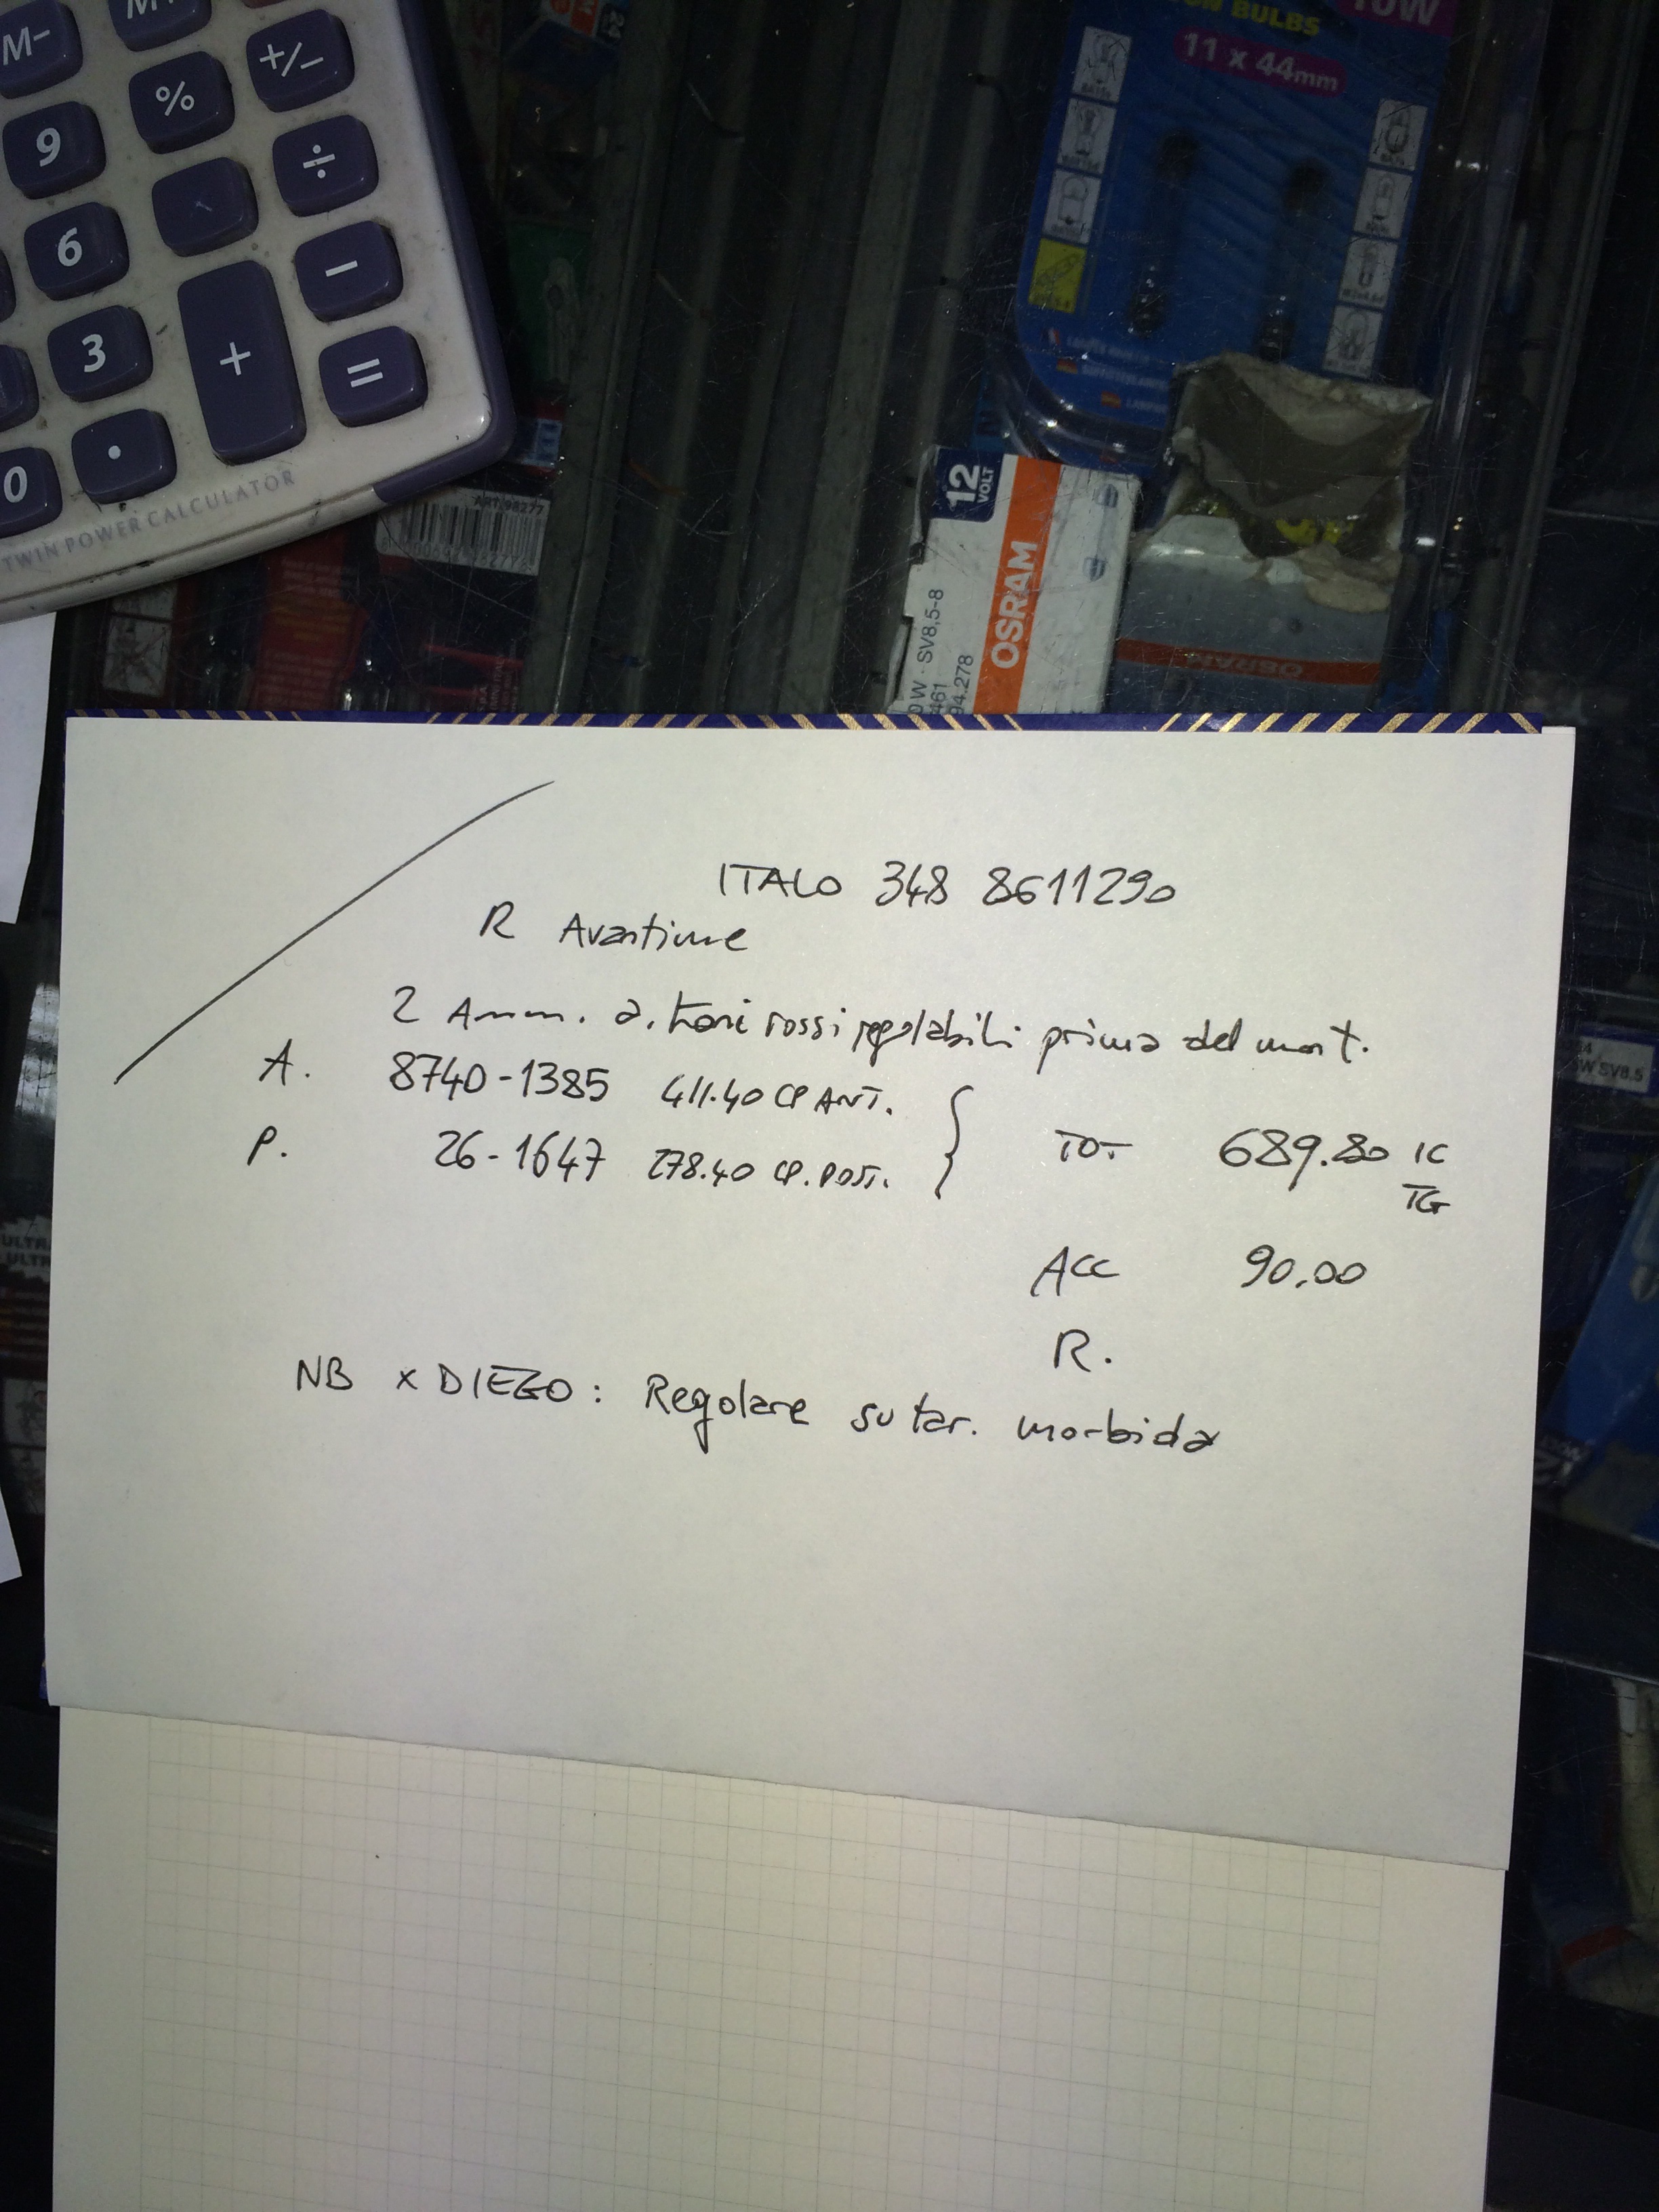 M-
%
+/-
9
÷
6
-
3
+
=
0
.
TWIN POWER CALCULATOR
BULBS
10W
11 x 44mm
ART.98277
12
VOLT
OSRAM
SV8,5-8
461
94.278
MARBO
W SV8.5
ULTRA
ULTR
ITALO 348 8611290
R Avantime
2 Amm. a.tori rossi regolabili prima del mont.
A. 8740-1385 411.40 CP ANT.
P. 26-1647 278.40 CP. POST.
TOT 689.80 IC
TG
ACC 90.00
R.
NB x DIEGO: Regolare su tar. morbida